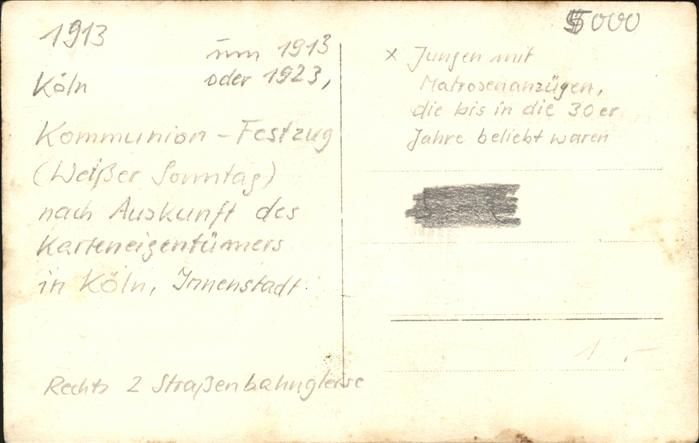 1913
um 1913
oder 1923,
Köln
Kommunion-Festzug
(Weißer Sonntag)
nach Auskunft des
Karteneigentümers
in Köln, Innenstadt.
Rechts 2 Straßenbahngleise
5000
x Jungen mit
Matrosenanzügen,
die bis in die 30er
Jahre beliebt waren
1,-